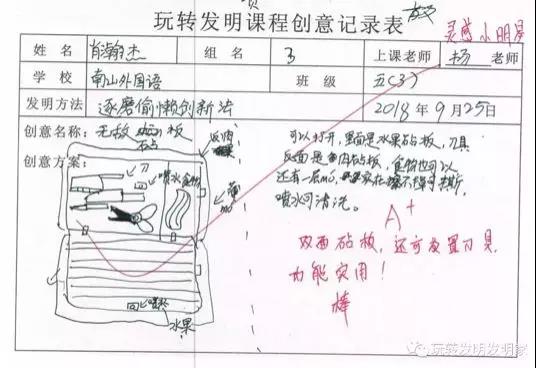 玩转发明课程创意记录表
灵感小明星
姓 名 肖瀚杰 组 名 3 上课老师 杨 老师
学 校 南山外国语 班 级 五(3)
发明方法 逐磨偷懒创新法 2018年9月25日
创意名称: 无敌砧板
创意方案:
反面
刀
喷水
食物
水果
可以打开,里面是水果砧板,刀具
反面是肉砧板,食物也可以
还有一层
喷水可清洗。
A+
双面砧板,还可放置刀具,
功能实用!
棒
玩转发明发明家